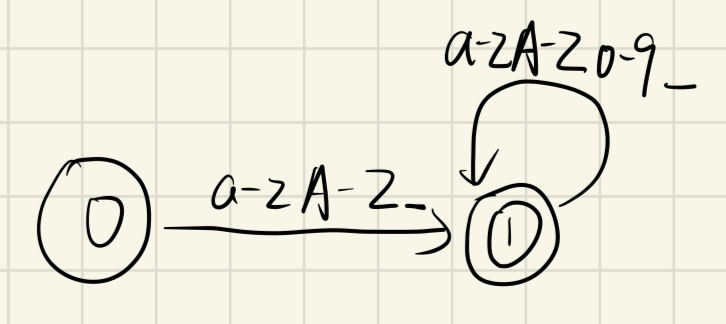 a-zA-Z0-9_
a-zA-Z_
0
1